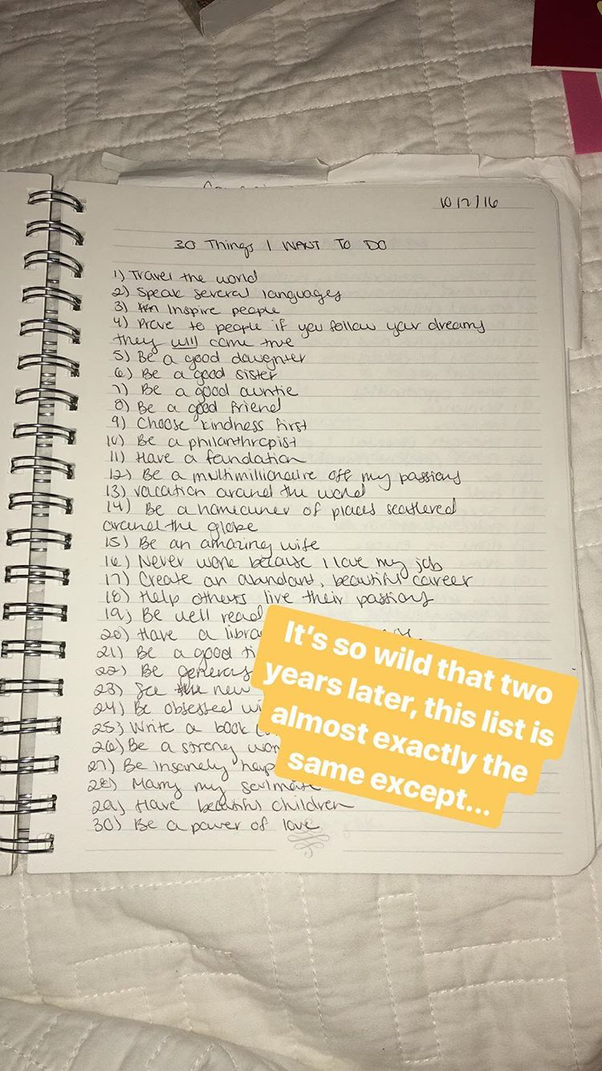 10/2/16
30 Things I WANT TO DO
1) Travel the world
2) Speak several languages
3) Inspire people
4) Prove to people if you follow your dreams
they will come true
5) Be a good daughter
6) Be a good sister
7) Be a good auntie
8) Be a good friend
9) Choose kindness first
10) Be a philanthropist
11) Have a foundation
12) Be a multimillionaire off my passions
13) vacation around the world
14) Be a homeowner of places scattered
around the globe
15) Be an amazing wife
16) Never work because I love my job
17) Create an abundant, beautiful career
18) Help others live their passions
19) Be well read
20) Have a libra
21) Be a good
22) Be generous
23) See the new
24) Be obsessed wi
25) Write a book
26) Be a strong wom
27) Be insanely hap
28) Marry my soulmate
29) Have beautiful children
30) Be a power of love
It's so wild that two
years later, this list is
almost exactly the
same except...